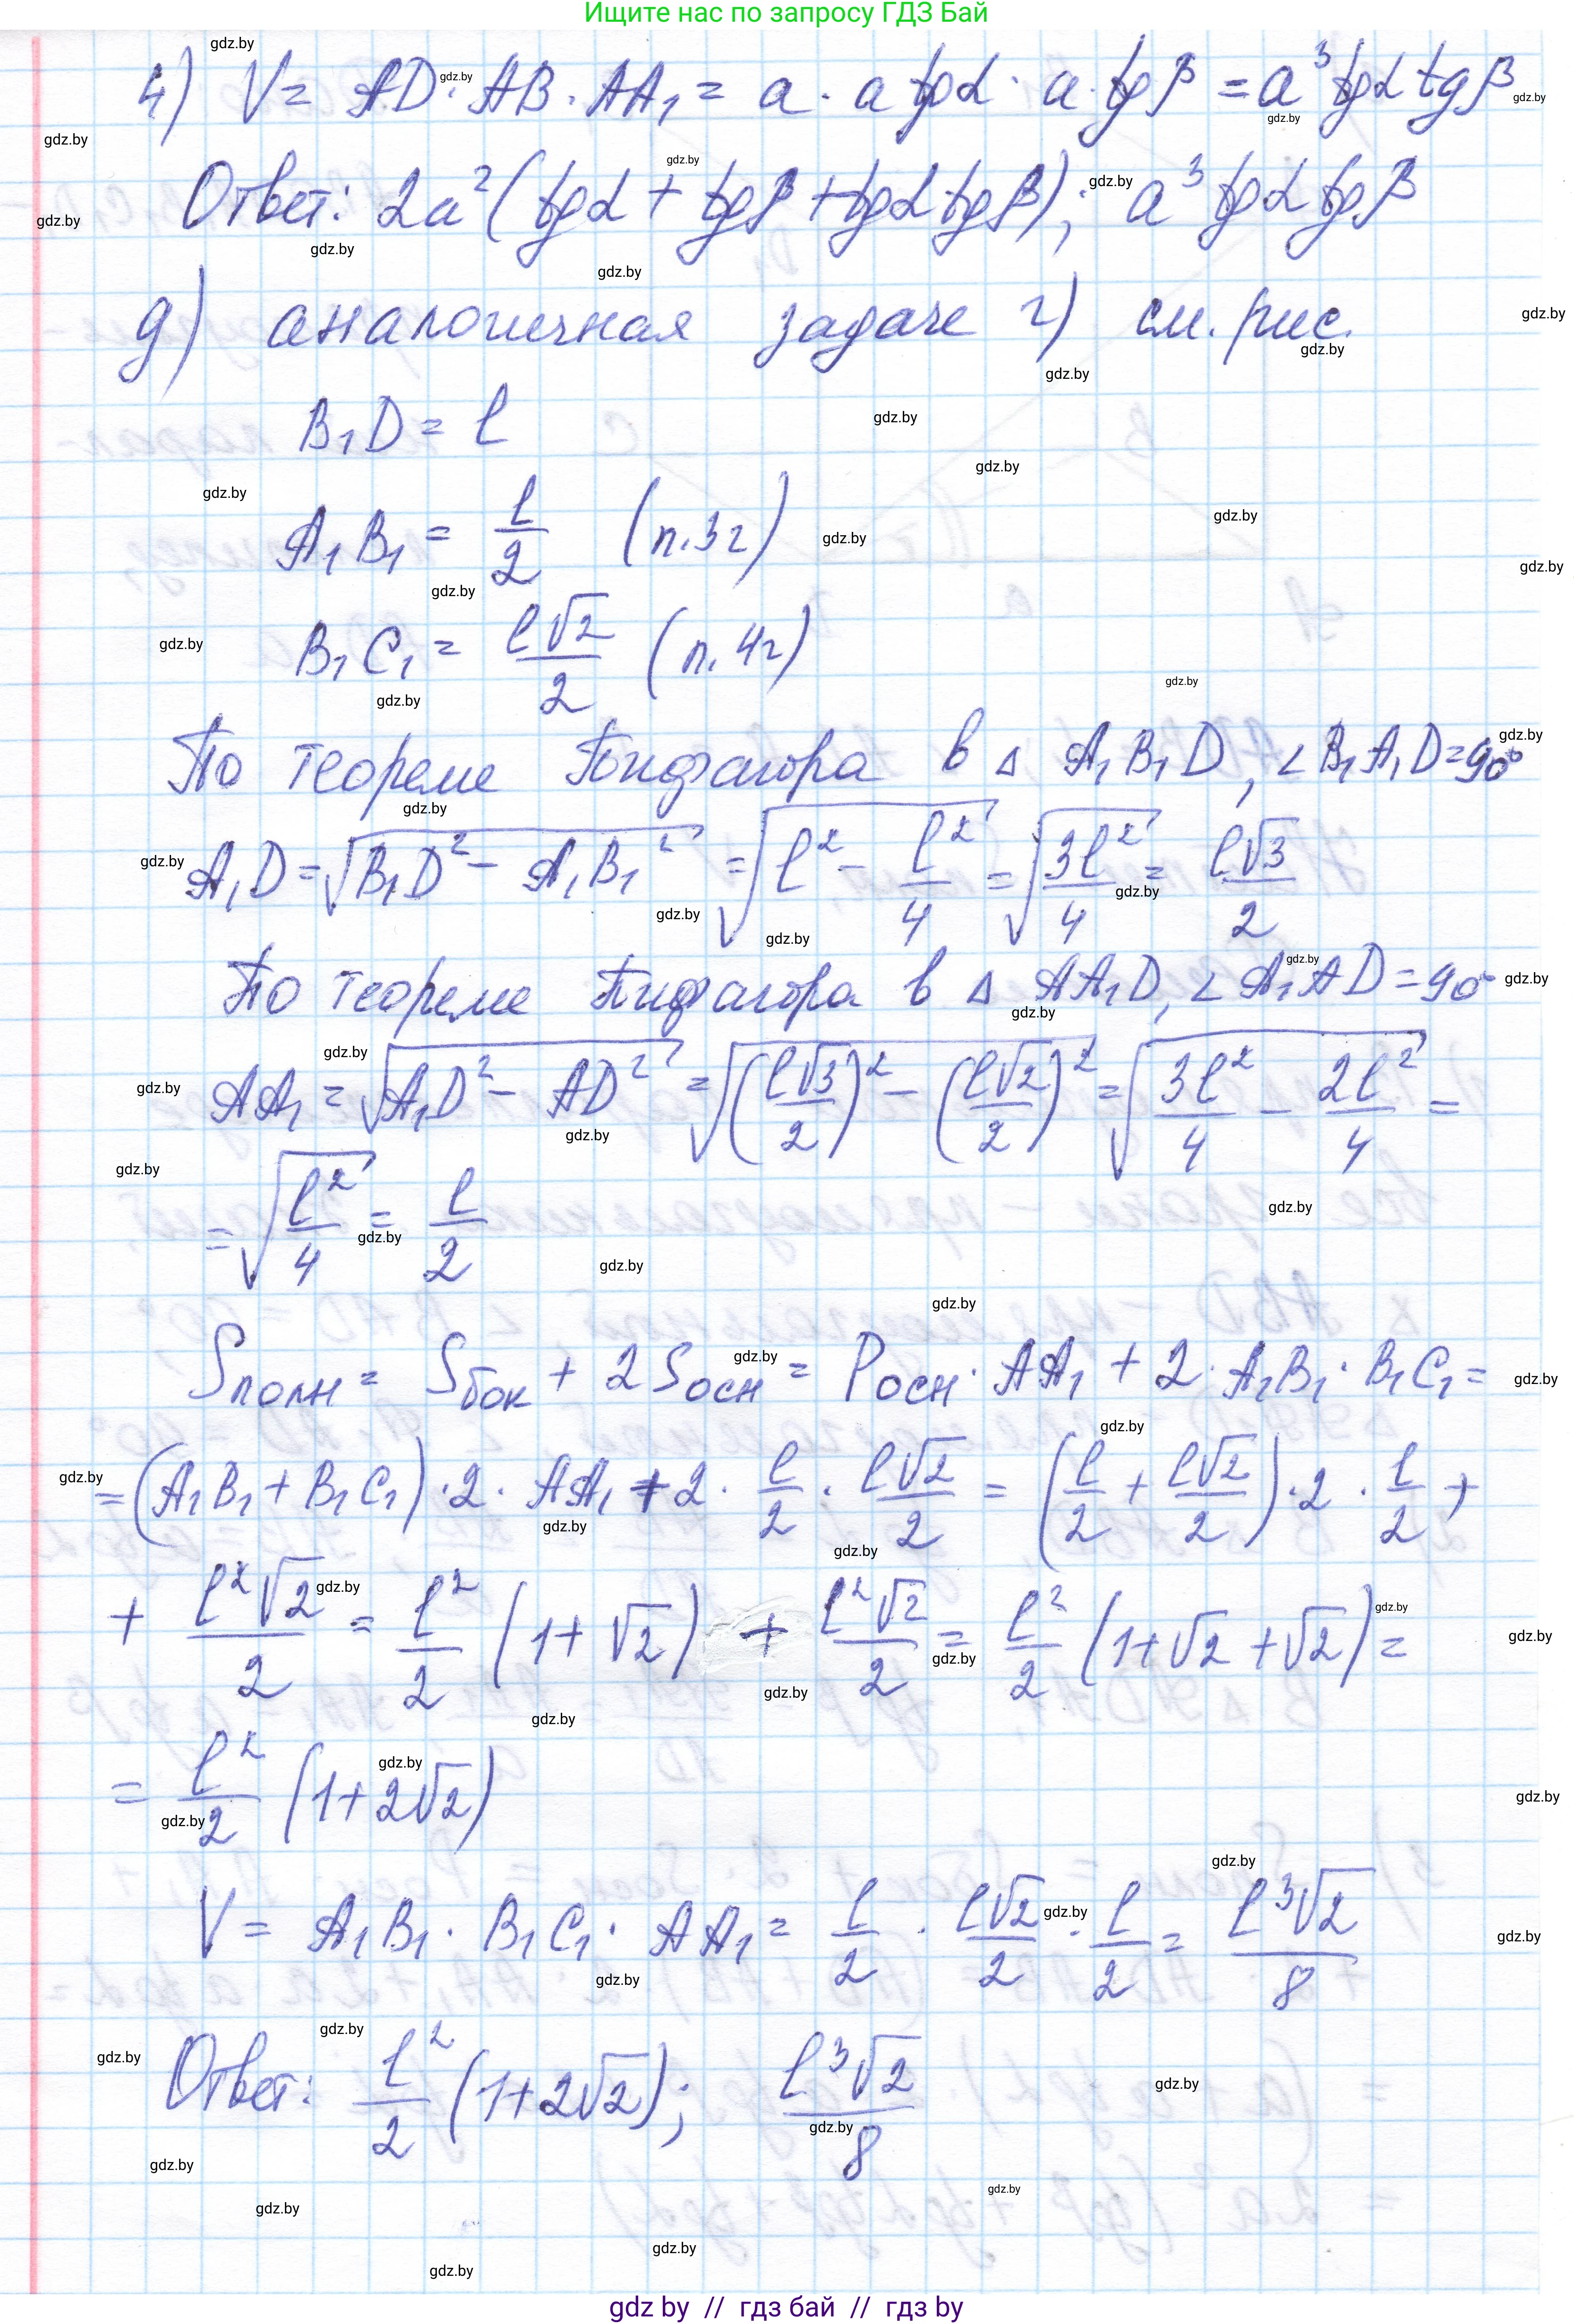 Ищите нас по запросу ГДЗ Бай
4) V = AD · AB · AA₁ = a · a tgα · a · tgβ = a³ tgα tgβ
Ответ: 2a² (tgα + tgβ + tgα tgβ); a³ tgα tgβ
д) аналогичная задаче г) см. рис.
B₁D = l
A₁B₁ = l/2 (п. 3г)
B₁C₁ = l√2/2 (п. 4г)
По теореме Пифагора в Δ A₁B₁D, ∠B₁A₁D = 90°
A₁D = √(B₁D² − A₁B₁²) = √(l² − l²/4) = √(3l²/4) = l√3/2
По теореме Пифагора в Δ AA₁D, ∠A₁AD = 90°
AA₁ = √(A₁D² − AD²) = √((l√3/2)² − (l√2/2)²) = √(3l²/4 − 2l²/4) =
= √(l²/4) = l/2
Sполн = Sбок + 2Sосн = Pосн · AA₁ + 2 · A₁B₁ · B₁C₁ =
= (A₁B₁ + B₁C₁) · 2 · AA₁ + 2 · l/2 · l√2/2 = (l/2 + l√2/2) · 2 · l/2 +
+ l²√2/2 = l²/2 (1 + √2) + l²√2/2 = l²/2 (1 + √2 + √2) =
= l²/2 (1 + 2√2)
V = A₁B₁ · B₁C₁ · AA₁ = l/2 · l√2/2 · l/2 = l³√2/8
Ответ: l²/2 (1 + 2√2); l³√2/8
gdz by // гдз бай // гдз by